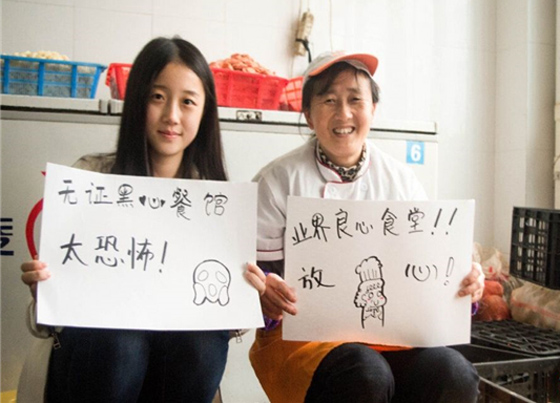 无证黑心餐馆
太恐怖!
业界良心食堂!!
放心!
6